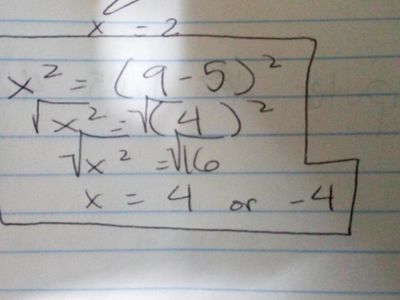 x = 2
x² = (9 - 5)²
√x² = √(4)²
√x² = √16
x = 4 or -4